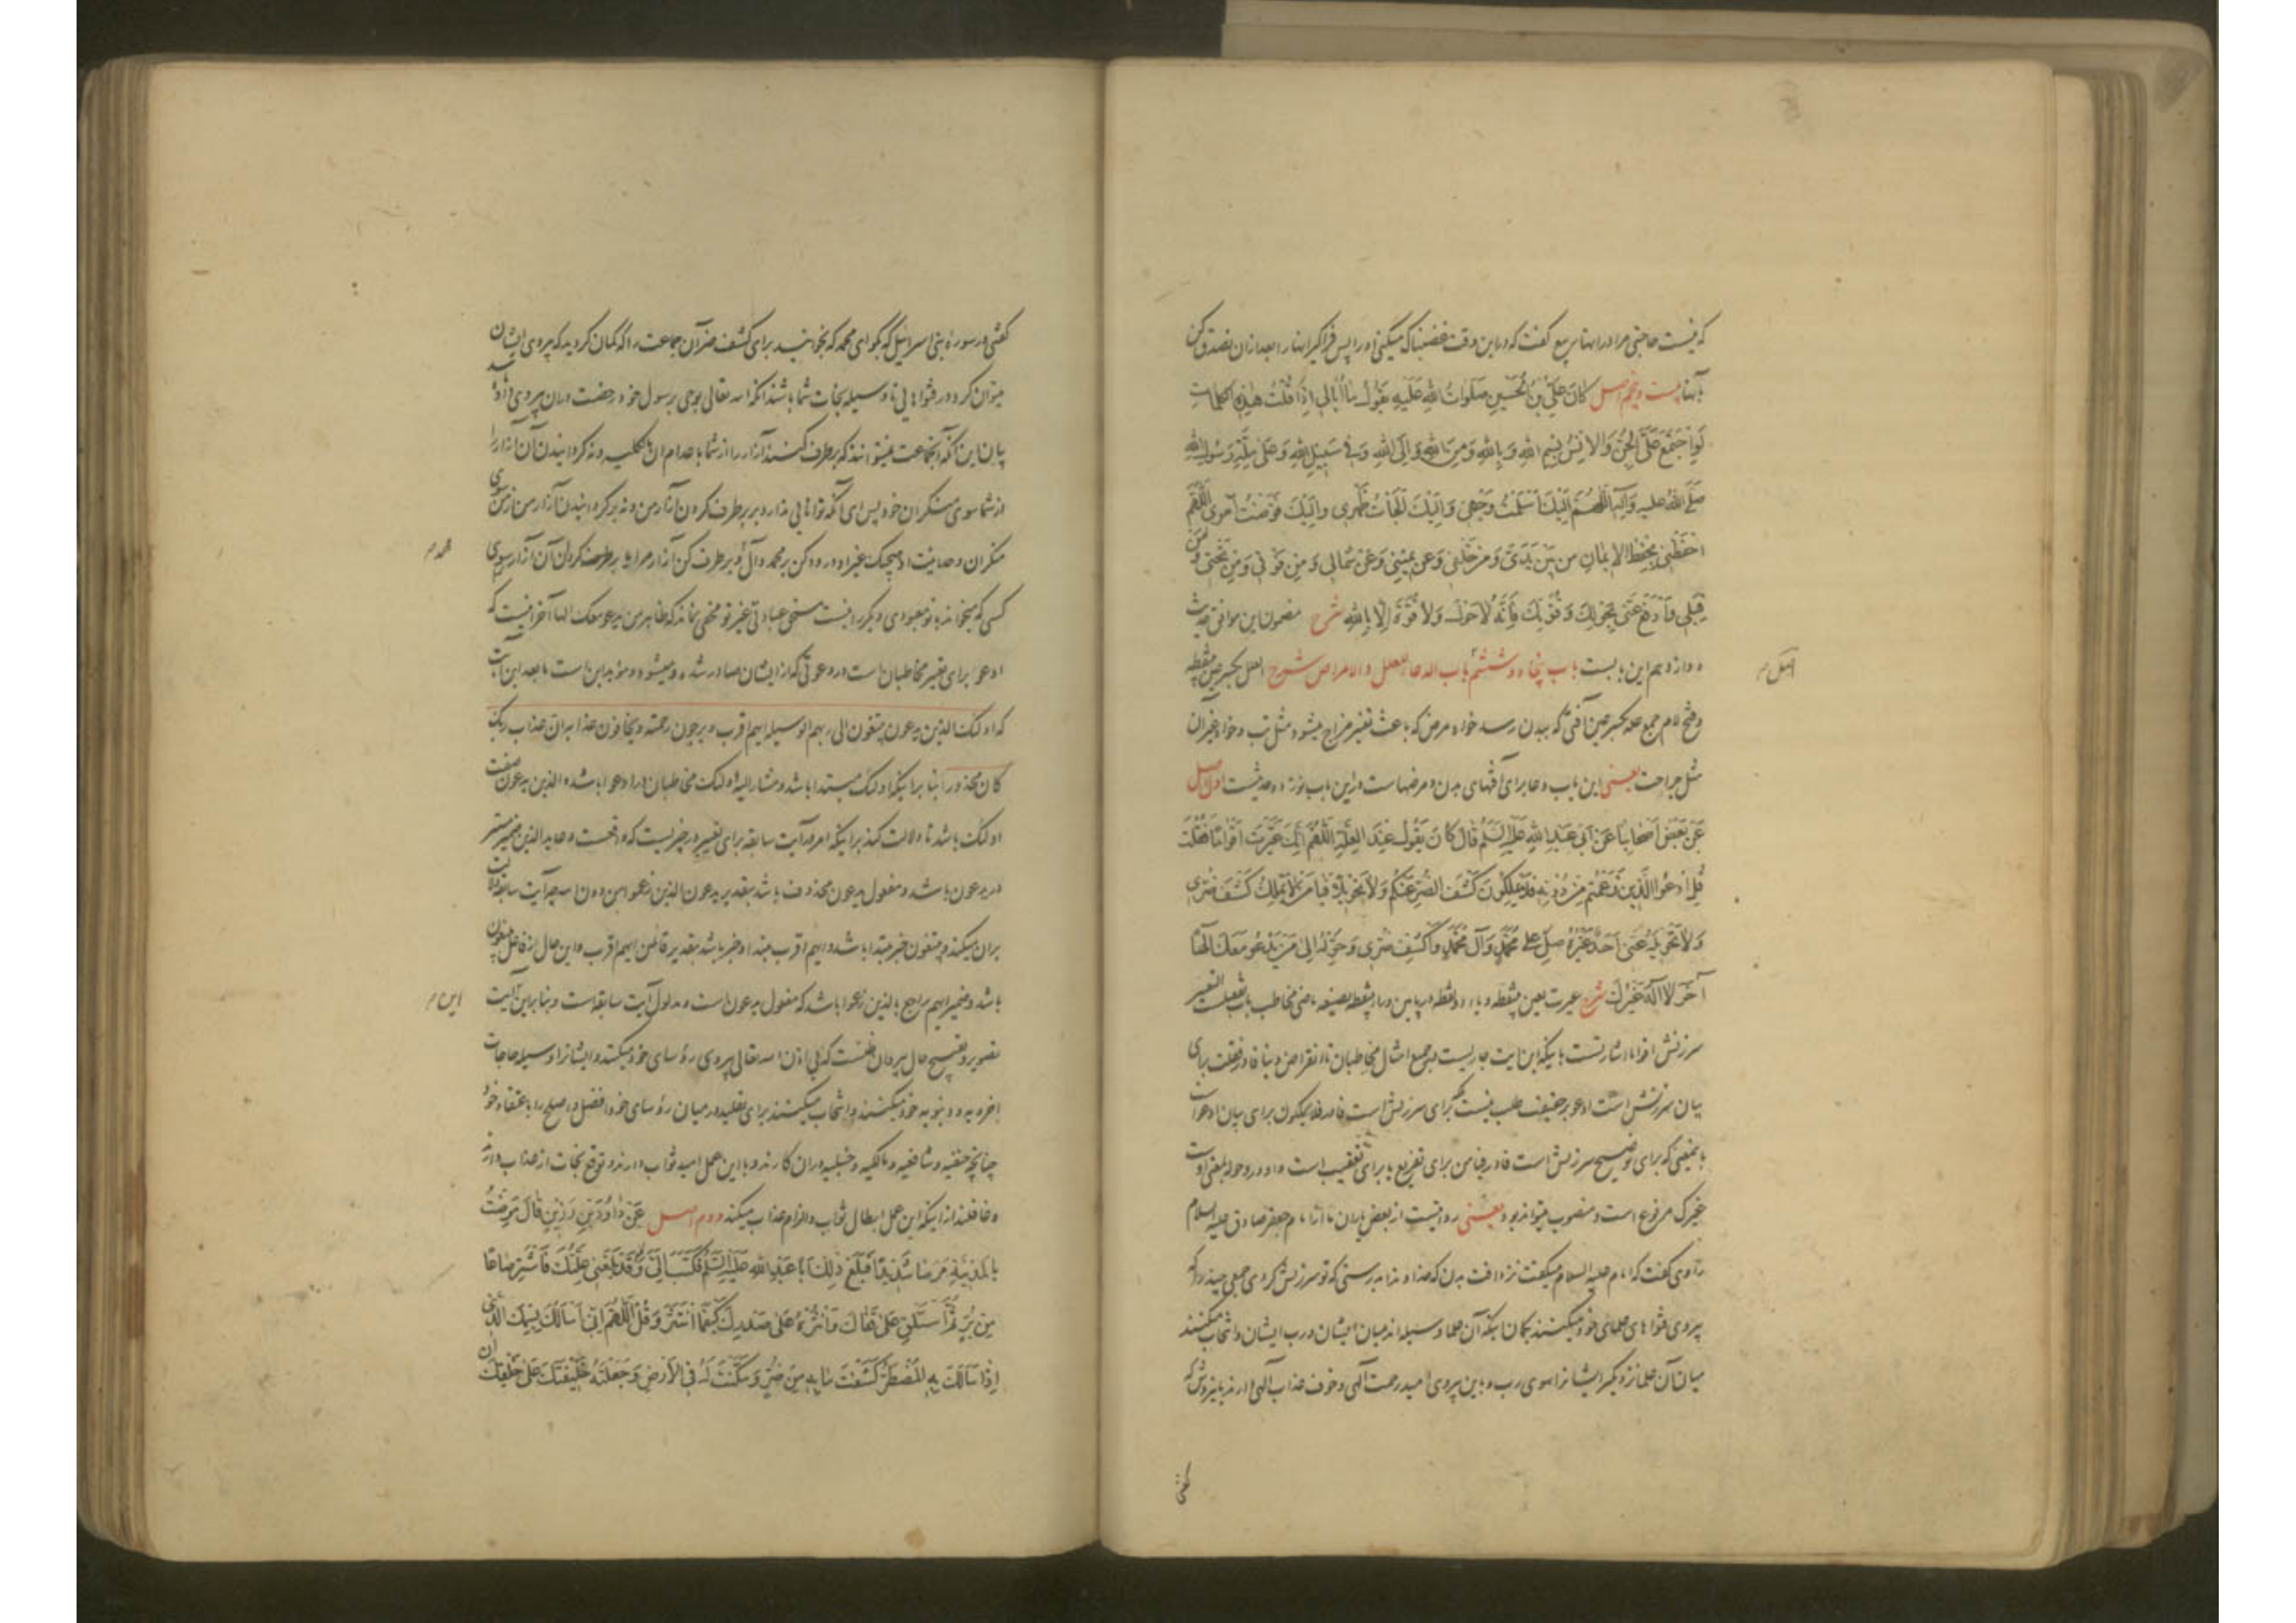 که نیست حاجتی مرا در اینها ربیع گفت که در این وقت غضبناک میکنی او را پس فراگیر اینها را بعد از آن تصدق کن
بآنها بیست و پنجم اصل کَانَ عَلِیُّ بْنُ الْحُسَیْنِ صَلَوَاتُ اللهِ عَلَیْهِ یَقُولُ مَا أُبَالِی إِذَا قُلْتُ هٰذِهِ الکلمات
لَوِ اجْتَمَعَ عَلَیَّ الْجِنُّ وَالْاِنْسُ بِسْمِ اللهِ وَبِاللهِ وَمِنَ اللهِ وَاِلَی اللهِ وَفِی سَبِیلِ اللهِ وَعَلٰی مِلَّةِ رَسُولِ اللهِ
صَلَّی اللهُ علیه وَآلِهِ اَللّٰهُمَّ اِلَیْكَ اَسْلَمْتُ وَجْهِی وَاِلَیْكَ اَلْجَأْتُ ظَهْرِی وَاِلَیْكَ فَوَّضْتُ اَمْرِی اَللّٰهُمَّ
احْفَظْنِی بِحِفْظِ الْاِیمَانِ مِن بَیْنِ یَدَیَّ وَمِنْ خَلْفِی وَعَنْ یَمِینِی وَعَنْ شِمَالِی وَمِنْ فَوْقِی وَمِنْ تَحْتِی وَمِنْ
قِبَلِی وَادْفَعْ عَنِّی بِحَوْلِكَ وَقُوَّتِكَ فَاِنَّهُ لَا حَوْلَ وَلَا قُوَّةَ اِلَّا بِاللهِ شرح مضمون این موافق حدیث
دوازدهم این بابست باب پنجاه و ششم باب الدعاء للعلل والامراض شرح العلل بکسر عین بینقطه
و فتح لام جمع عله بکسر عین آفتی که ببدن رسد خواه مرض که باعث تغییر مزاج میشود مثل تب و خواه غیر آن
مثل جراحت یعنی این باب دعا برای آفتهای بدن و مرضهاست در این باب نوزده حدیثست اول اصل
عَنْ بَعْضِ اَصْحَابِنَا عَنْ اَبِی عَبْدِ اللهِ عَلَیْهِ السَّلَمُ قَالَ کَانَ یَقُولُ عِنْدَ الْعِلَّةِ اَللّٰهُمَّ اِنَّكَ عَیَّرْتَ اَقْوَامًا فَقُلْتَ
قُلِ ادْعُوا الَّذِینَ زَعَمْتُمْ مِنْ دُونِهِ فَلَا یَمْلِکُونَ کَشْفَ الضُّرِّ عَنْکُمْ وَلَا تَحْوِیلًا فَیَا مَنْ لَا یَمْلِكُ کَشْفَ ضُرِّی
وَلَا تَحْوِیلَهُ عَنِّی اَحَدٌ غَیْرُهُ صَلِّ عَلٰی مُحَمَّدٍ وَآلِ مُحَمَّدٍ وَاکْشِفْ ضُرِّی وَحَوِّلْهُ اِلٰی مَنْ یَدْعُو مَعَكَ اِلٰهًا
آخَرَ لَا اِلٰهَ غَیْرُكَ شرح عیرت بعین بینقطه و یاء دو نقطه در پایین و راء بینقطه بصیغه ماضی مخاطب باب تفعیلست التعییر
سرزنش اقواما اشارتست باینکه این آیت جاریست در جمیع امثال مخاطبان تا انقراض دنیا فاء در فقلت برای
بیان سرزنش است ادعو بر حقیقت طلب نیست بلکه برای سرزنش است فاء در فلا یملکون برای بیان ادعوا است
بمعنیی که برای توضیح سرزنش است فاء در فیا من برای تفریع یا برای تعقیب است واو در و حوله بمعنی او است
غیرک مرفوع است و منصوب میتواند بود یعنی روایتست از بعض یاران ما از امام جعفر صادق علیه السلام
راوی گفت که امام علیه السلام میگفت نزد آفت بدن که خداوندا بدرستی که تو سرزنش کردی جمعی چند را که
پیروی فتواهای علمای خود میکنند بگمان اینکه آن علما وسیله اند میان ایشان و رب ایشان و انتخاب میکنند
میان آن علما نزدیکتر ایشانرا سوی رب و باین پیروی امید رحمت الهی و خوف عذاب الهی دارند
اصل م
گفتی
گفتی در سورهٔ بنی اسرائیل که بگو ای محمد که بخوانید برای کشف ضر آن جماعت را که گمان کردید که پیروی ایشان
میتوان کرد در فتواهایی تا وسیله نجات شما باشند
پایان این آنکه آنجماعت نمیتوانند که برطرف کنند آزار را از شما
از شما سوی منکران خود پس ای آنکه توانایی ندارد بر برطرف کردن آزار من و نه بر گردانیدن آزار من از من
منکران وحدانیت او هیچیک غیر او درود کن بر محمد و آل او و برطرف کن آزار مرا
محمد م
کسی که میخواند با تو معبودی دیگر را نیست مستحق عبادتی غیر تو مخفی نماند که ظاهر من یدعو معک الها آخر اینست که
ادعوا برای تعییر مخاطبان است در دعوتی که از ایشان صادر شده و میشود و مؤید این است مابعد این آیت
که اولئک الذین یدعون یبتغون الی ربهم الوسیله ایهم اقرب و یرجون رحمته و یخافون عذابه ان عذاب ربک
کان محذورا بنا بر اینکه اولئک مبتدا باشد و مشار الیه اولئک مخاطبان در ادعوا باشد و الذین یدعون صفت
اولئک باشد تا دلالت کند بر اینکه امر در آیت سابقه برای تعییر در چیزیست که واقعست و عاید الذین ضمیر مستتر
در یدعون باشد و مفعول یدعون محذوف باشد بتقدیر یدعون الذین زعموا من دون الله چه آیت سابقه دلالت
بر آن میکند و یبتغون خبر مبتدا باشد و ایهم اقرب مبتدا و خبر باشد بتقدیر قائلین ایهم اقرب و این حال از فاعل یبتغون
باشد و ضمیر ایهم راجع بالذین زعموا باشد که مفعول یدعون است و مدلول آیت سابقه است و بنابراین آیت
این م
تصویر و تقبیح حال پیروان ظنست که بی اذن الله تعالی پیروی رؤسای خود میکنند و ایشانرا وسیله حاجات
اخرویه و دنیویه خود میکنند و انتخاب میکنند برای تقلید در میان رؤسای خود افضل و اصلح را باعتقاد خود
چنانچه حنفیه و شافعیه و مالکیه و حنبلیه در آن کارند و با این عمل امید ثواب دارند و توقع نجات از عذاب دارند
و غافلند از اینکه این عمل ابطال ثواب و الزام عذاب میکند دوم اصل عَنْ دَاوُدَ بْنِ رَزِینٍ قَالَ مَرِضْتُ
بِالْمَدِینَةِ مَرَضًا شَدِیدًا فَبَلَغَ ذٰلِكَ اَبَا عَبْدِ اللهِ عَلَیْهِ السَّلَمُ فَکَتَبَ اِلَیَّ قَدْ بَلَغَنِی عِلَّتُكَ فَاشْتَرِ صَاعًا
مِنْ بُرٍّ ثُمَّ اسْتَلْقِ عَلٰی قَفَاكَ وَانْثُرْهُ عَلٰی صَدْرِكَ کَیْفَمَا انْتَثَرَ وَقُلْ اَللّٰهُمَّ اِنِّی اَسْأَلُكَ بِاسْمِكَ الَّذِی
اِذَا سَأَلَكَ بِهِ الْمُضْطَرُّ کَشَفْتَ مَا بِهِ مِنْ ضُرٍّ وَمَکَّنْتَ لَهُ فِی الْاَرْضِ وَجَعَلْتَهُ خَلِیفَتَكَ عَلٰی خَلْقِكَ اَنْ